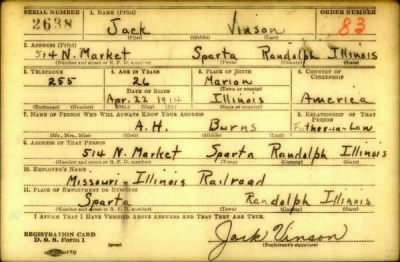 SERIAL NUMBER 1. NAME (Print) ORDER NUMBER
2638 Jack Vinson 83
(First) (Middle) (Last)
2. ADDRESS (Print)
514 N. Market Sparta Randolph Illinois
(Number and street or R. F. D. number) (Town) (County) (State)
3. TELEPHONE 4. AGE IN YEARS 5. PLACE OF BIRTH 6. COUNTRY OF CITIZENSHIP
255 26 Marion
DATE OF BIRTH (Town or county)
Apr. 22 1914 Illinois America
(Exchange) (Number) (Mo.) (Day) (Yr.) (State or country)
7. NAME OF PERSON WHO WILL ALWAYS KNOW YOUR ADDRESS 8. RELATIONSHIP OF THAT PERSON
A. H. Burns Father-in-Law
(Mr., Mrs., Miss) (First) (Middle) (Last)
9. ADDRESS OF THAT PERSON
514 N. Market Sparta Randolph Illinois
(Number and street or R. F. D. number) (Town) (County) (State)
10. EMPLOYER'S NAME
Missouri-Illinois Railroad
11. PLACE OF EMPLOYMENT OR BUSINESS
Sparta Randolph Illinois
(Number and street or R. F. D. number) (Town) (County) (State)
I AFFIRM THAT I HAVE VERIFIED ABOVE ANSWERS AND THAT THEY ARE TRUE.
REGISTRATION CARD
D. S. S. Form 1 Jack Vinson
(Registrant's signature)